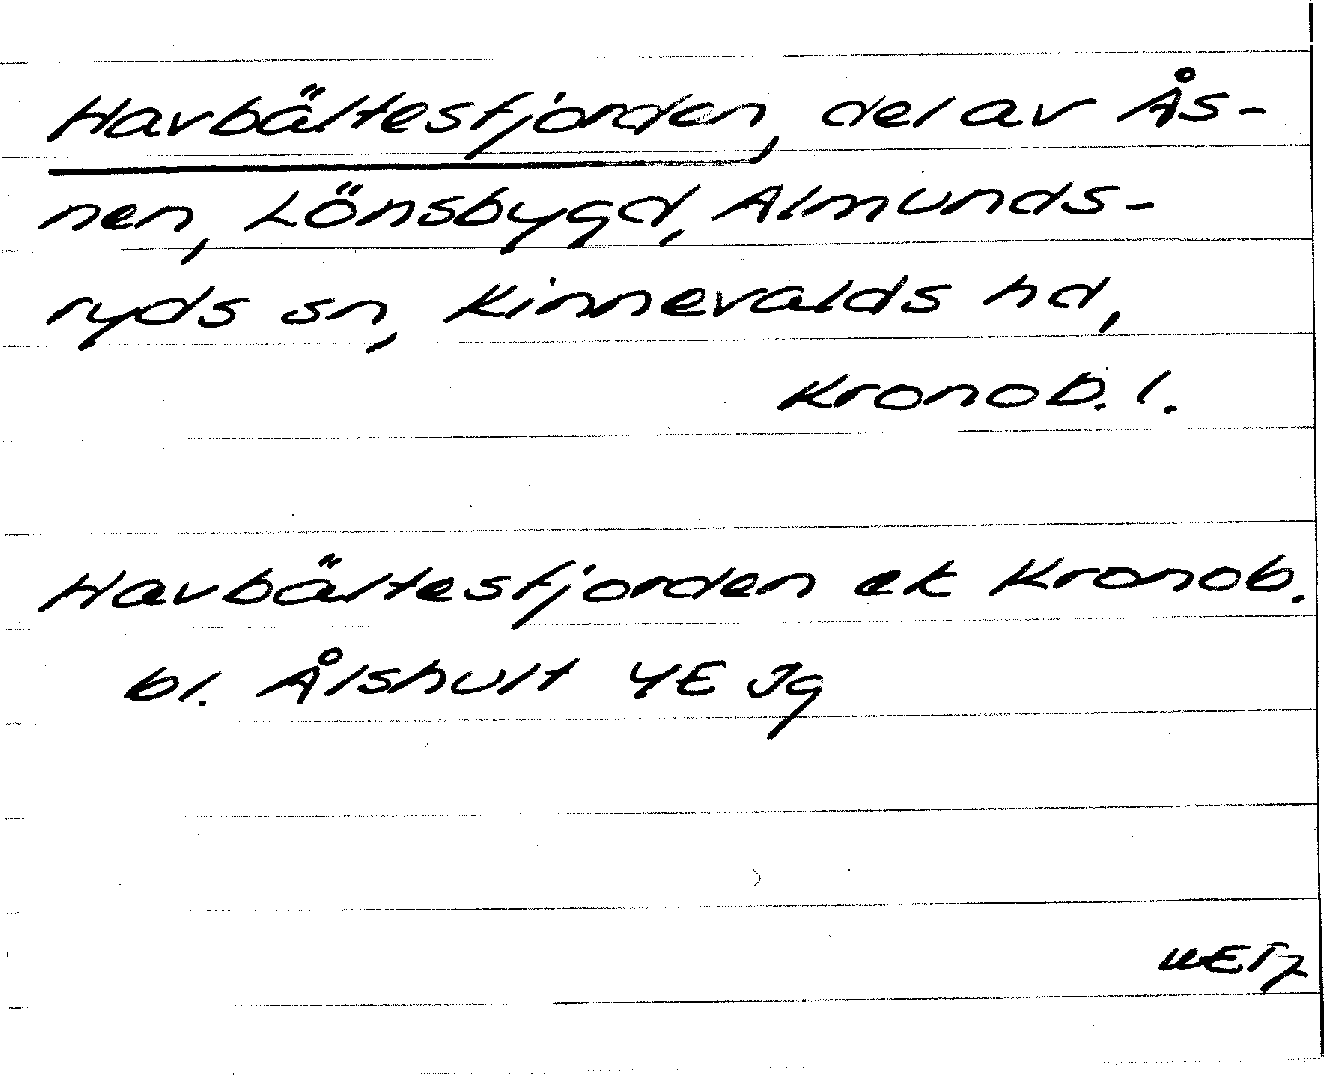 Havbältesfjorden, del av Ås-
nen, Lönsbygd, Almunds-
ryds sn, Kinnevalds hd,
Kronob. l.
Havbältesfjorden ek Kronob.
bl. Ålshult 4E Jg